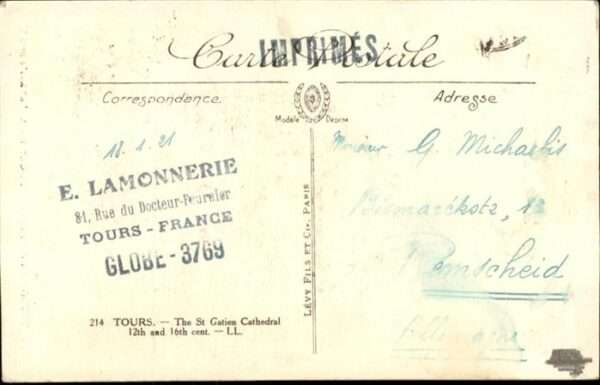 Carte Postale
IMPRIMÉS
Correspondance
Adresse
Modèle Déposé
18.1.21
E. LAMONNERIE
81, Rue du Docteur-Fournier
TOURS - FRANCE
GLOBE - 3769
214 TOURS. — The St Gatien Cathedral
12th and 16th cent. — LL.
LÉVY FILS ET Cie, PARIS
G. Michaelis
Remscheid
Allemagne